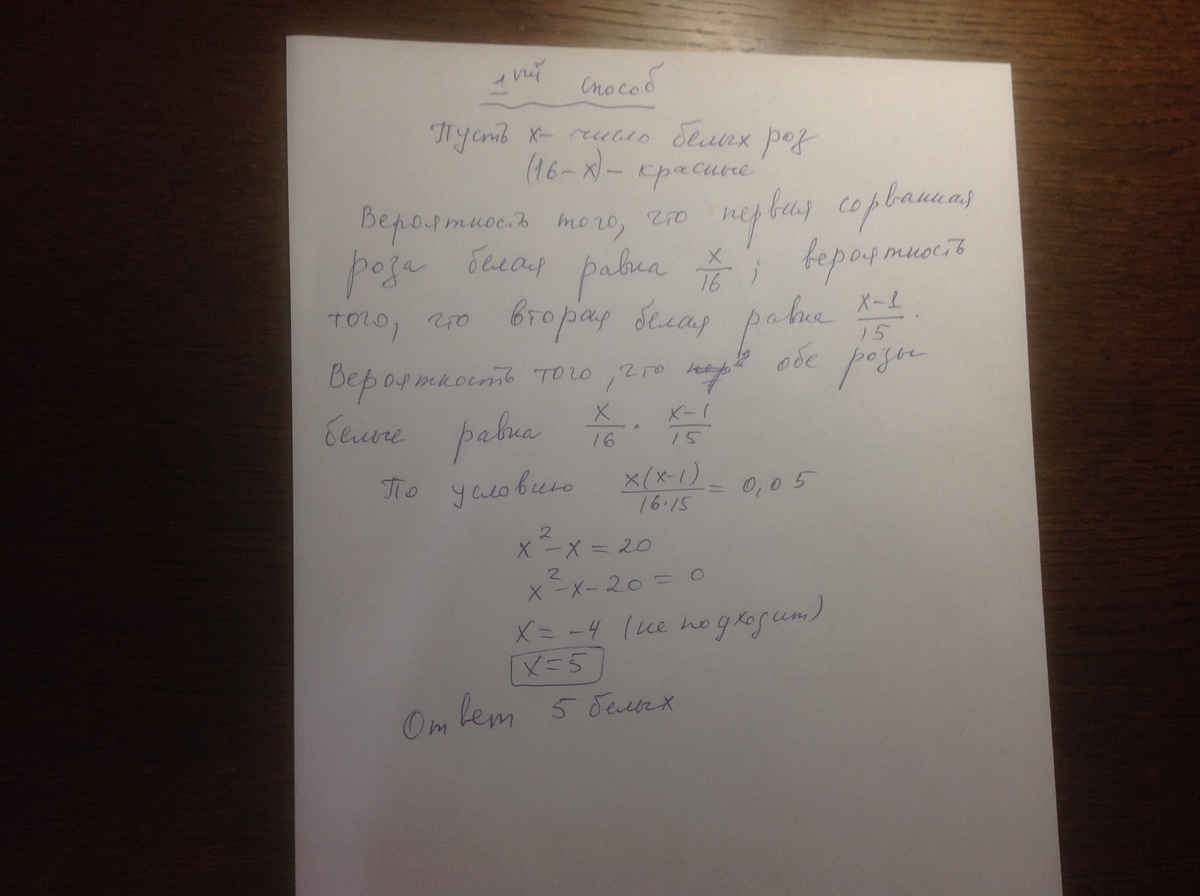 1ый способ
Пусть x – число белых роз
(16 – x) – красные
Вероятность того, что первая сорванная
роза белая равна x/16 ; вероятность
того, что вторая белая равна (x–1)/15 .
Вероятность того, что обе розы
белые равна x/16 · (x–1)/15
По условию x(x–1)/(16·15) = 0,05
x² – x = 20
x² – x – 20 = 0
x = –4 (не подходит)
x = 5
Ответ 5 белых